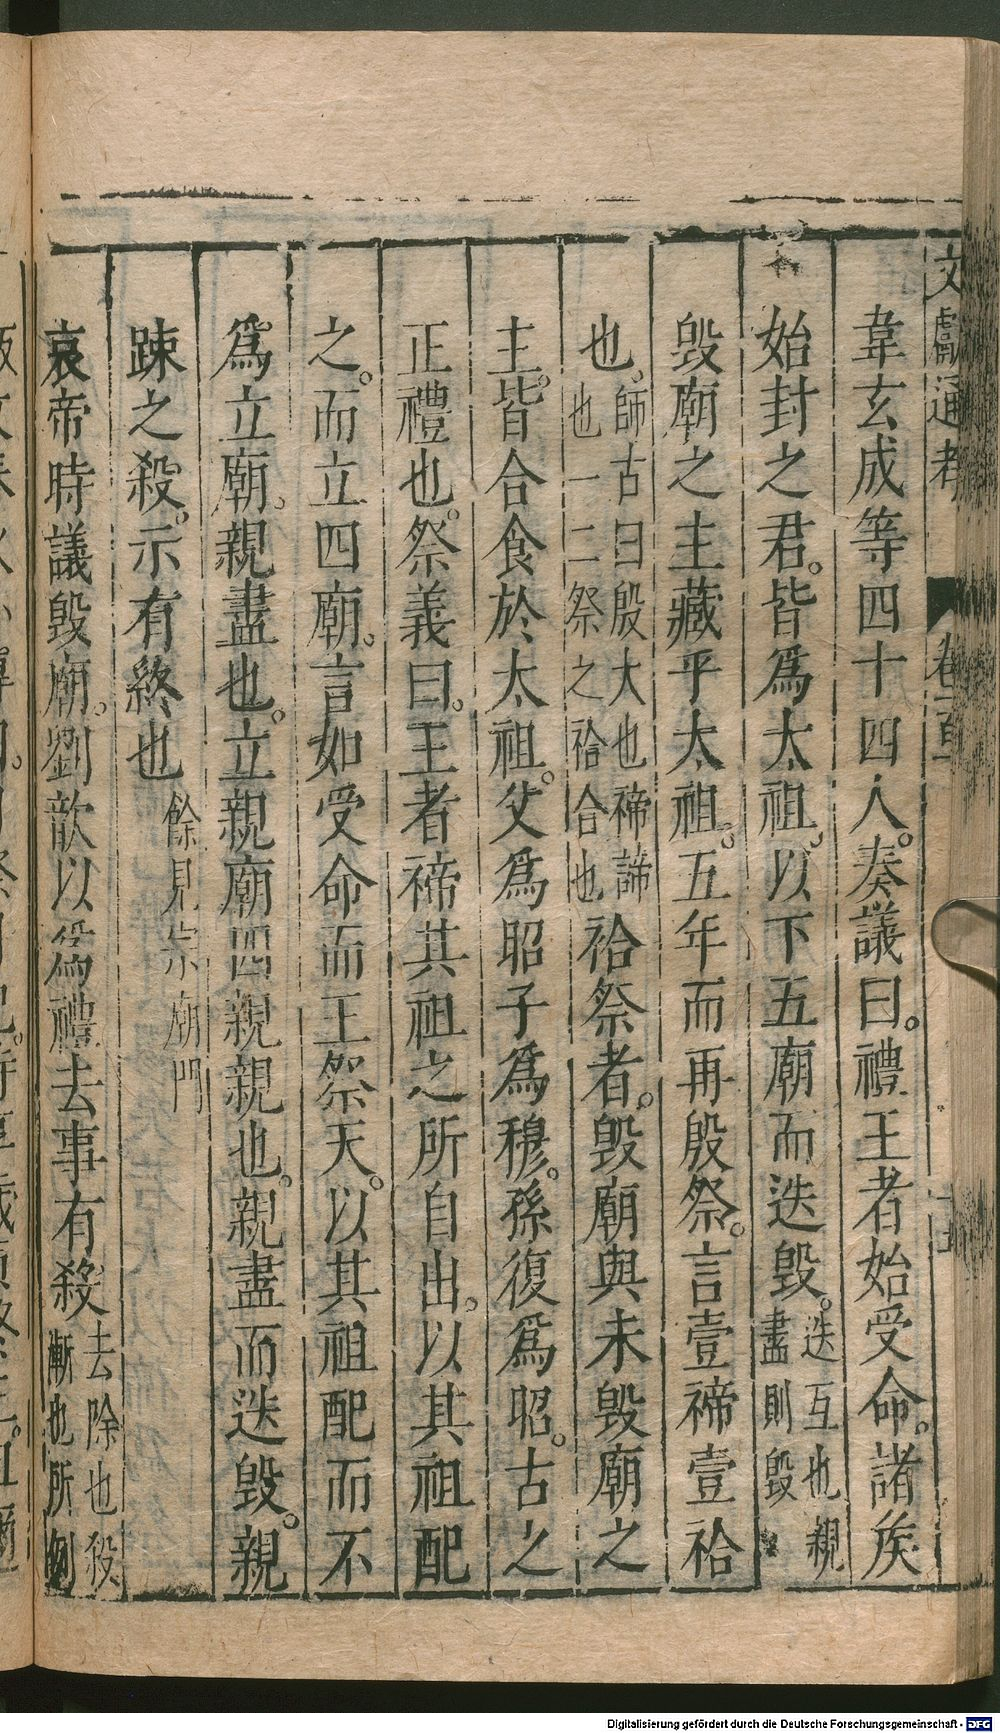 文獻通考 卷一百一
韋玄成等四十四人奏議曰禮王者始受命諸矦
始封之君皆爲太祖以下五廟而迭毁迭互也親盡則毁
毁廟之主藏乎太祖五年而再殷祭言壹禘壹祫
也師古曰殷大也禘諦也一二祭之祫合也祫祭者毁廟與未毁廟之
主皆合食於太祖父爲昭子爲穆孫復爲昭古之
正禮也祭義曰王者禘其祖之所自出以其祖配
之而立四廟言如受命而王祭天以其祖配而不
爲立廟親盡也立親廟四親親也親盡而迭毁親
踈之殺示有終也餘見宗廟門
哀帝時議毁廟劉歆以爲禮去事有殺去除也殺漸也所例
Digitalisierung gefördert durch die Deutsche Forschungsgemeinschaft - DFG